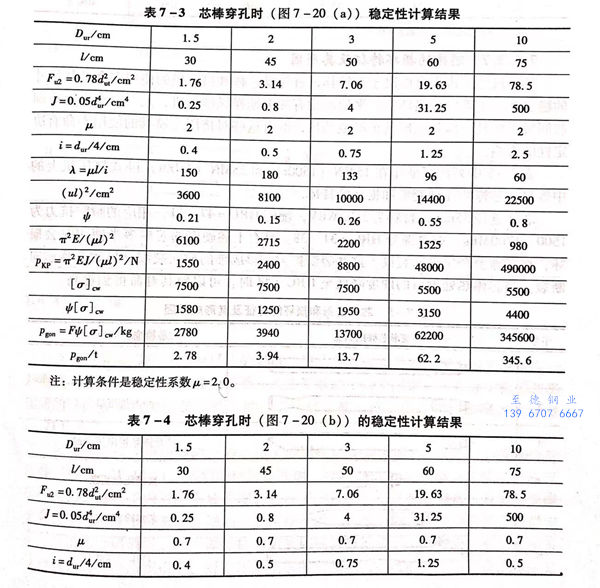 表7-3 芯棒穿孔时(图7-20(a))稳定性计算结果
D_ur/cm 1.5 2 3 5 10
l/cm 30 45 50 60 75
F_u2=0.78d²_ut/cm² 1.76 3.14 7.06 19.63 78.5
J=0.05d⁴_ur/cm⁴ 0.25 0.8 4 31.25 500
μ 2 2 2 2 2
i=d_ur/4/cm 0.4 0.5 0.75 1.25 2.5
λ=μl/i 150 180 133 96 60
(ul)²/cm² 3600 8100 10000 14400 22500
ψ 0.21 0.15 0.26 0.55 0.8
π²E/(μl)² 6100 2715 2200 1525 980
p_KP=π²EJ/(μl)²/N 1550 2400 8800 48000 490000
[σ]_cw 7500 7500 7500 5500 5500
ψ[σ]_cw 1580 1250 1950 3150 4400
p_gon=Fψ[σ]_cw/kg 2780 3940 13700 62200 345600
p_gon/t 2.78 3.94 13.7 62.2 345.6
注:计算条件是稳定性系数μ=2.0。
至德钢业
139 6707 6667
表7-4 芯棒穿孔时(图7-20(b))的稳定性计算结果
D_ur/cm 1.5 2 3 5 10
l/cm 30 45 50 60 75
F_u2=0.78d²_ut/cm² 1.76 3.14 7.06 19.63 78.5
J=0.05d⁴_ur/cm⁴ 0.25 0.8 4 31.25 500
μ 0.7 0.7 0.7 0.7 0.7
i=d_ur/4/cm 0.4 0.5 0.75 1.25 0.5